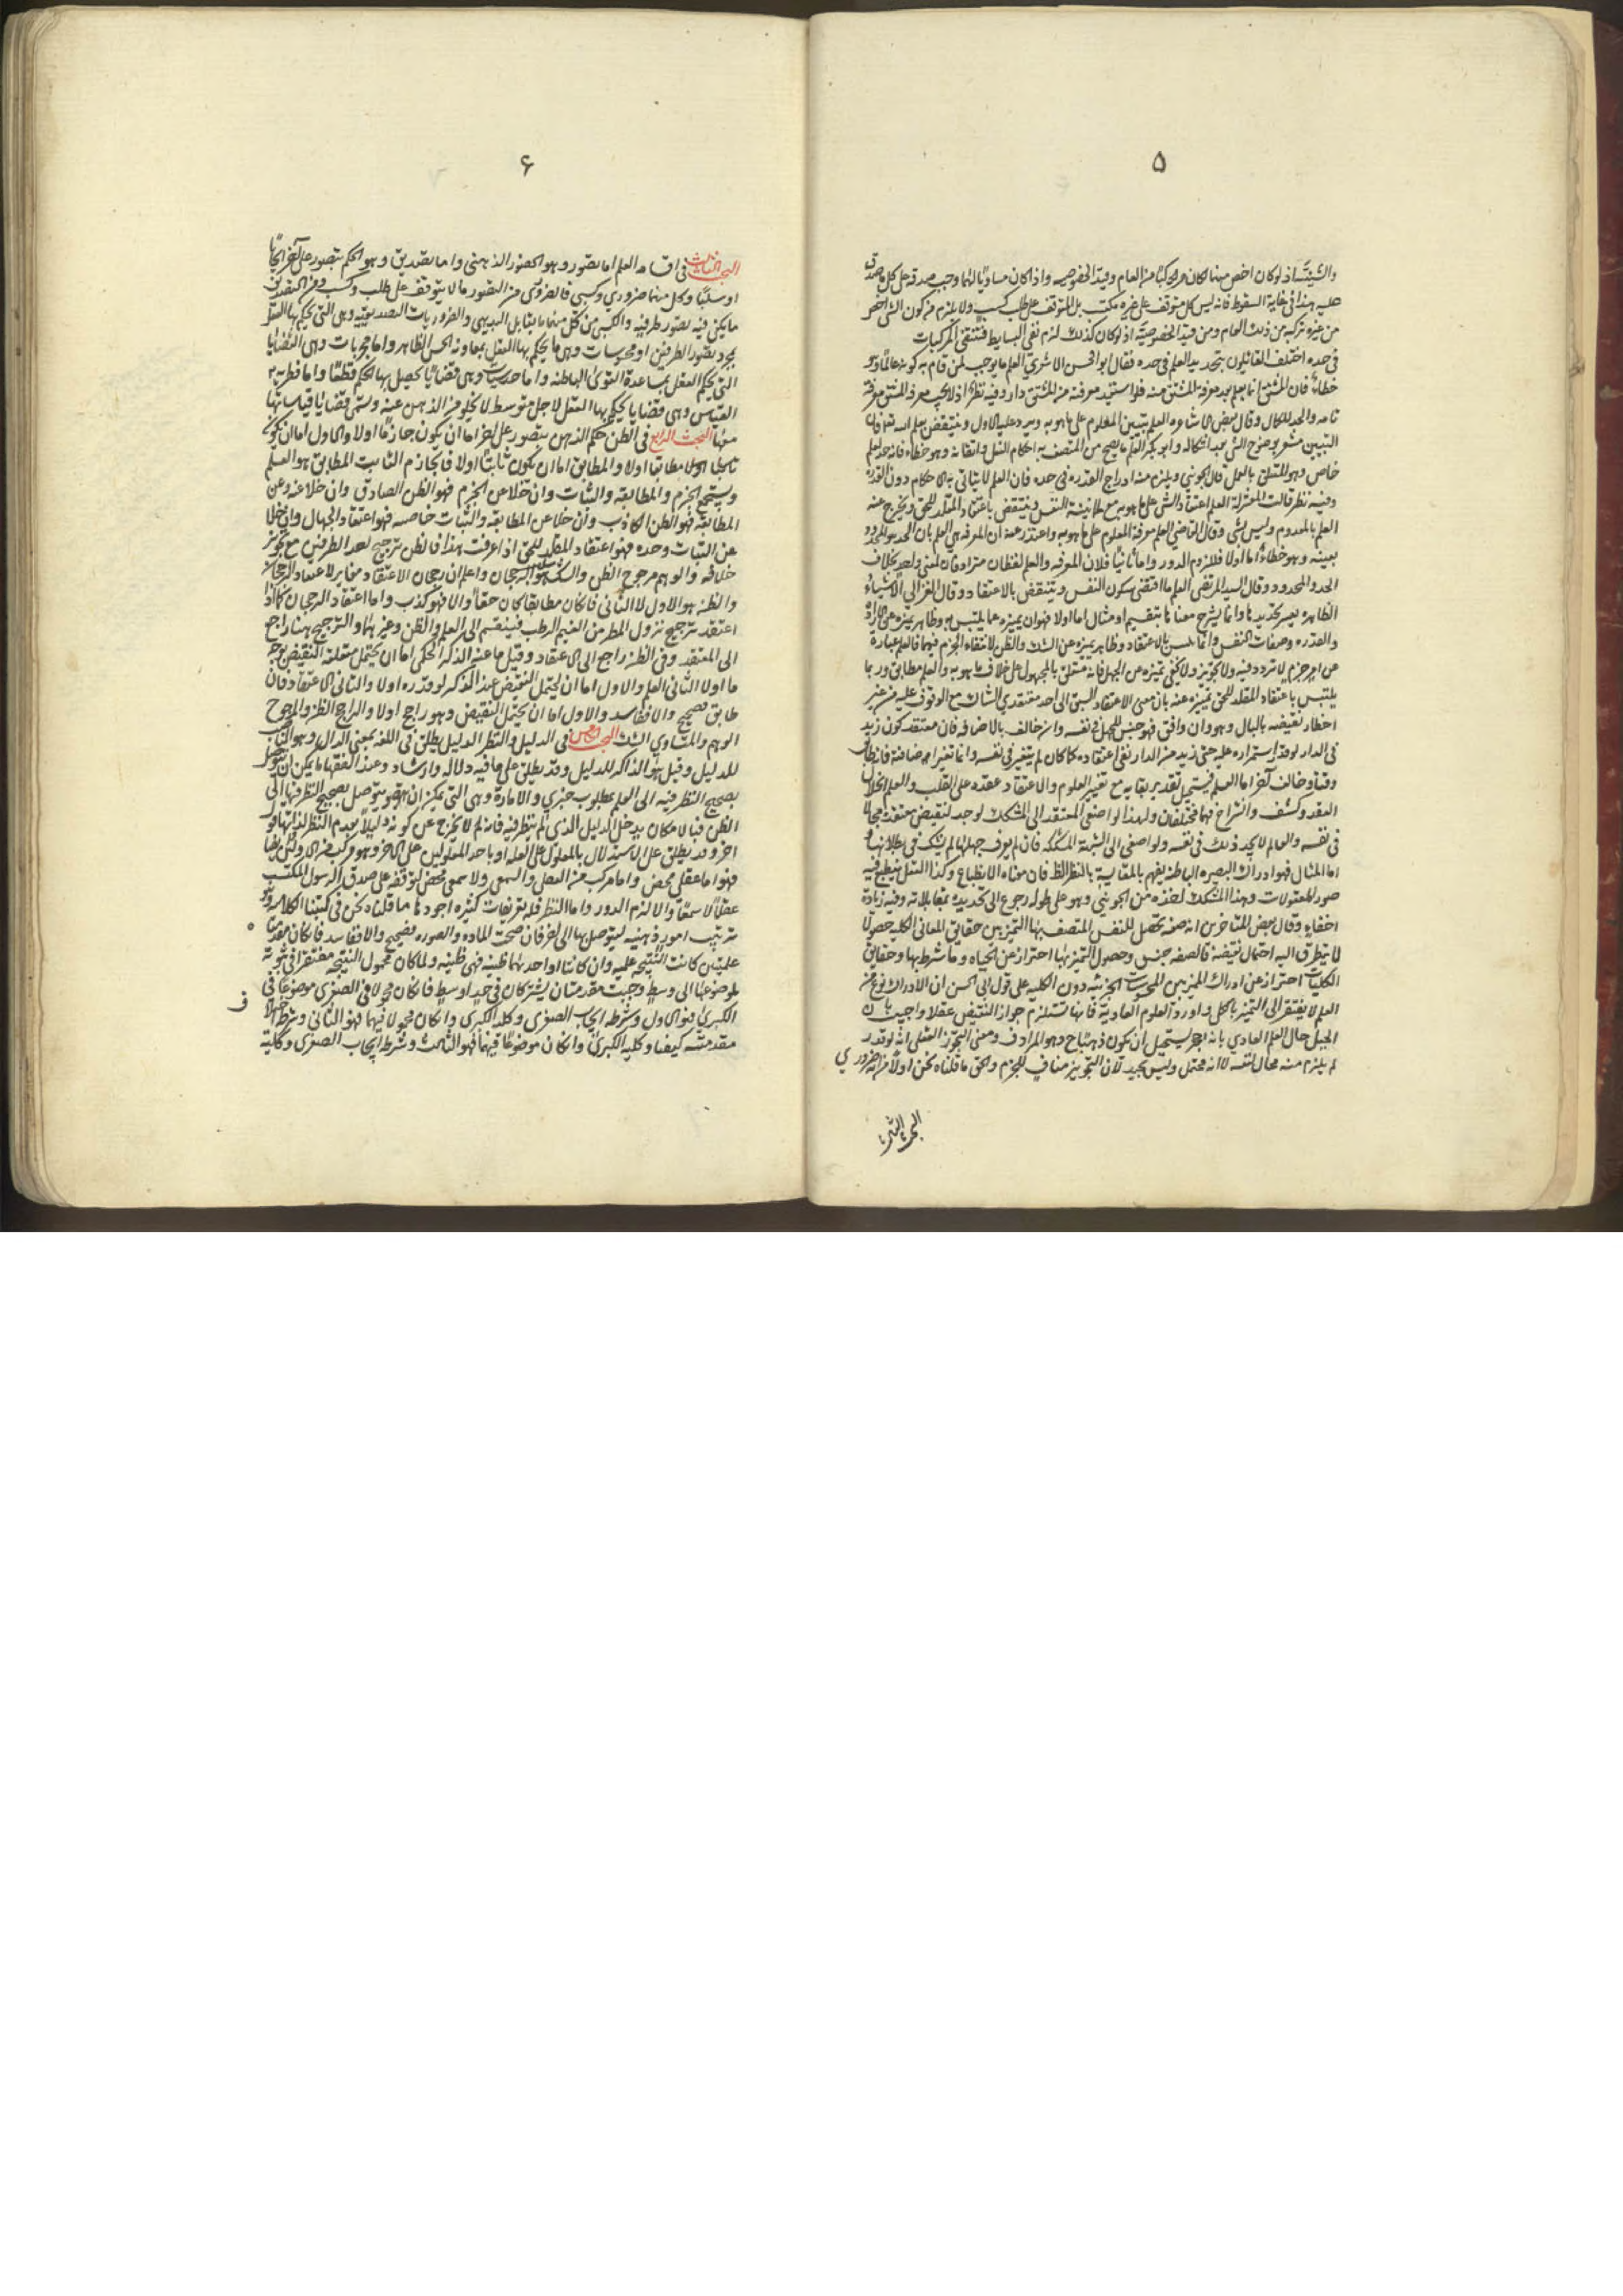 ۵
والشيئية اذ لو كان اخص منهما لكان مركبا من العام وقيد الخصوصيه واذا كان مساويا لهما وجب صدقه على كل ما صدق
عليه هذا في غاية السقوط فانه ليس كل متوقف على غيره مكتسب بل المتوقف على طلب كسب ولا يلزم من كون الشي اخص
من غيره تركبه من ذلك العام ومن قيد الخصوصية اذ لو كان كذلك لزم نفي البسايط فتنتفي المركبات
في حده اختلف القائلون بتحديد العلم في حده فقال ابو الحسن الاشعري العلم ما يوجب لمن قام به كونه عالما وهو
خطاء فان المشتق انما يعلم بعد معرفة المشتق منه فلو استفيد معرفته من المشتق دار وفيه نظر اذ لا يجب معرفة المشتق معرفة
تامه والحد للكمال وقال بعض الاشاعره العلم تبيين المعلوم على ما هو به ويرد عليه الاول وينتقض بعلم الله تعالى فان
التبيين مشعر بوضوح الشي بعد اشكاله و ابو بكر العلم ما يصح من المتصف به احكام الفعل واتقانه وهو خطاء فانه حد لعلم
خاص وهو المتعلق بالعمل قال الجويني ويلزم منه ادراج القدره في حده فان العلم لا يتاتى به الاحكام دون القدرة
وفيه نظر قالت المعتزلة العلم اعتقاد الشي على ما هو به مع طمانينة النفس وينتقض باعتقاد المقلد للحق ويخرج عنه
العلم بالمعدوم وليس بشي وقال القاضي العلم معرفة المعلوم على ما هو به واعتذر عنه ان المعرفه هي العلم بان الحد هو المحدود
بعينه وهو خطاء اما اولا فللزوم الدور واما ثانيا فلان المعرفه والعلم لفظان مترادفان لمعنى واحد بخلاف
الحد والمحدود وقال السيد المرتضى العلم ما اقتضى سكون النفس وينتقض بالاعتقاد وقال الغزالي الاشياء
الظاهره يعسر تحديدها وانما يشرح معناها بتقسيم او مثال اما الاول فهو ان يميزه عما يلتبس به وظاهر تميزه عن الارادة
والقدره وصفات النفس وانما يلتبس بالاعتقاد وظاهر تميزه عن الشك والظن لانتفاء الجزم فيهما فالعلم عبارة
عن امر جزم لا تردد فيه ولا تجويز ولا يخفى تميزه عن الجهل فانه متعلق بالمجهول على خلاف ما هو به والعلم مطابق وربما
يلتبس باعتقاد المقلد للحق وتميزه عنه بان معنى الاعتقاد السبق الى احد معتقدي الشاك مع الوقوف عليه من غير
اخطار نقيضه بالبال وهو وان وافق فهو جنس للجهل في نفسه وان خالف بالاضافه فان معتقد كون زيد
في الدار لو قدر استمراره عليه حتى زيد من الدار بقي اعتقاده كما كان لم يتغير في نفسه وانما تغير اضافته فانه طابق
وقتا وخالف آخر اما العلم فيستحيل تقدير بقايه مع تغيير المعلوم والاعتقاد عقده على القلب والعلم انحلال
العقد وكشف وانشراح فهما مختلفان ولهذا لو اصغى المعتقد الى المشكك لوجد لنقيض معتقده مجالا
في نفسه والعالم لا يجد ذلك في نفسه ولو اصغى الى الشبهة المشككه فان لم يعرف حلها لم يشك في بطلانها و
اما المثال فهو ادراك البصيره الباطنه يفهم بالمقايسة بالنظر الظاهر فان معناه الانطباع وكذا العقل ينطبع فيه
صور المعقولات وهذا المشكك اخذه من الجويني وهو على طوله رجوع الى تحديده بمقابلاته وفيه زيادة
اخفاء وقال بعض المتاخرين انه صفة تحصل للنفس المتصف بها التميز بين حقايق المعاني الكليه حصولا
لا يتطرق اليه احتمال نقيضه فالصفه جنس وحصول التميز بها احتراز عن الحياه وما شرط بها وحقايق
الكليات احتراز عن ادراك المميز بين المحسوسات الجزئيه دون الكليه على قول ابي الحسن ان الادراك نوع من
العلم لا يفتقر الى التميز بالكل واورد العلوم العادية فانها تستلزم جواز النقيض عقلا واجيب بان
الجبل حال العلم العادي بانه حجر يستحيل ان يكون ذهبا وهو المراد ومعنى التجويز العقلي انه لو قدر
لم يلزم منه محال لنفسه لا انه محتمل وليس بجيد لان التجويز مناف للجزم والحق ما قلناه نحن اولا من انه ضروري
البحث الثالث
۶
البحث الثالث في اقسام العلم اما تصور وهو الحضور الذهني واما تصديق وهو الحكم بتصور على آخر ايجابا
او سلبا وكل منهما ضروري وكسبي فالضروري من التصور ما لا يتوقف على طلب وكسب ومن التصديق
ما يكفي فيه تصور طرفيه والكسبي من كل منهما ما يقابل البديهي والضروريات التصديقيه وهي التي يحكم بها العقل
بمجرد تصور الطرفين او محسوسات وهي ما يحكم بها العقل بمعاونه الحس الظاهر واما مجربات وهي القضايا
التي يحكم العقل بمساعدة القوى الباطنه واما حدسيات وهي قضايا يحصل بها الحكم قطعا واما فطرية
القياس وهي قضايا يحكم بها العقل لاجل متوسط لا يخلو من الذهن عنه وسمي قضايا قياساتها
معها البحث الرابع في الظن حكم الذهن بتصور على آخر اما ان يكون جازما اولا والاول اما ان يكون
مطابقا اولا والمطابق اما ان يكون ثابتا اولا فالجازم الثابت المطابق هو العلم
ويستجمع الجزم والمطابقه والثبات وان خلا عن الجزم فهو الظن الصادق وان خلا عنه وعن
المطابقة فهو الظن الكاذب وان خلا عن المطابقه والثبات خاصه فهو اعتقاد الجهال وان خلا
عن الثبات وحده فهو اعتقاد المقلد للحق اذا عرفت هذا فالظن ترجيح احد الطرفين مع تجويز
خلافه والوهم مرجوح الظن والشك سلب الرجحان واعلم ان رجحان الاعتقاد مغاير لاعتقاد الرجحان
والظن هو الاول لا الثاني فان كان مطابقا كان حقا والا فهو كذب واما اعتقاد الرجحان كما اذا
اعتقد ترجيح نزول المطر من الغيم الرطب فينقسم الى العلم والظن وغيرهما والترجيح هنا راجع
الى المعتقد وفي الظن راجع الى الاعتقاد وقيل ما عنه الذكر الحكمي اما ان يحتمل متعلقه النقيض بوجه
ما اولا الثاني العلم والاول اما ان يحتمل النقيض عند الذاكر لو قدره اولا والثاني الاعتقاد فان
طابق فصحيح والا ففاسد والاول اما ان يحتمل النقيض وهو راجح اولا والراجح الظن والمرجوح
الوهم والمتساوي الشك البحث الخامس في الدليل والنظر الدليل يطلق في اللغه بمعنى الدال وهو الناصب
للدليل وقيل هو الذاكر للدليل وقد يطلق على ما فيه دلاله وارشاد وعند الفقها ما يمكن ان يتوصل
بصحيح النظر فيه الى العلم بمطلوب خبري والامارة وهي التي يمكن ان يتوصل بصحيح النظر فيها الى
الظن فبالامكان يدخل الدليل الذي لم ينظر فيه فانه لم لا يخرج عن كونه دليلا بعدم النظر
اخر وقد يطلق على الاستدلال بالمعلول على العله او باحد المعلولين على الاخر وهو مركب من الاولين
فهو اما عقلي محض واما مركب من العقل والسمع ولا سمعي محض لتوقفه على صدق الرسول المكتسب
عقلا لا سمعا والا لزم الدور واما النظر فله تعريفات كثيره اجودها ما قلناه نحن في كتبنا الكلاميه وهو
ترتيب امور ذهنيه ليتوصل بها الى آخر فان صحت الماده والصوره فصحيح والا ففاسد فان كان مقدمتا
علميتين كانت النتيجه علميه وان كانتا او احدهما ظنيه فهي ظنيه ولما كان محمول النتيجه مفتقرا في ثبوته
لموضوعها الى وسط وجبت مقدمتان يشتركان في حد اوسط فان كان محمولا في الصغرى موضوعا في
الكبرى فهو الاول وشرطه ايجاب الصغرى وكليه الكبرى وان كان محمولا فيهما فهو الثاني وشرطه اختلاف
مقدمتيه كيفا وكليه الكبرى وان كان موضوعا فيهما فهو الثالث وشرطه ايجاب الصغرى وكلية